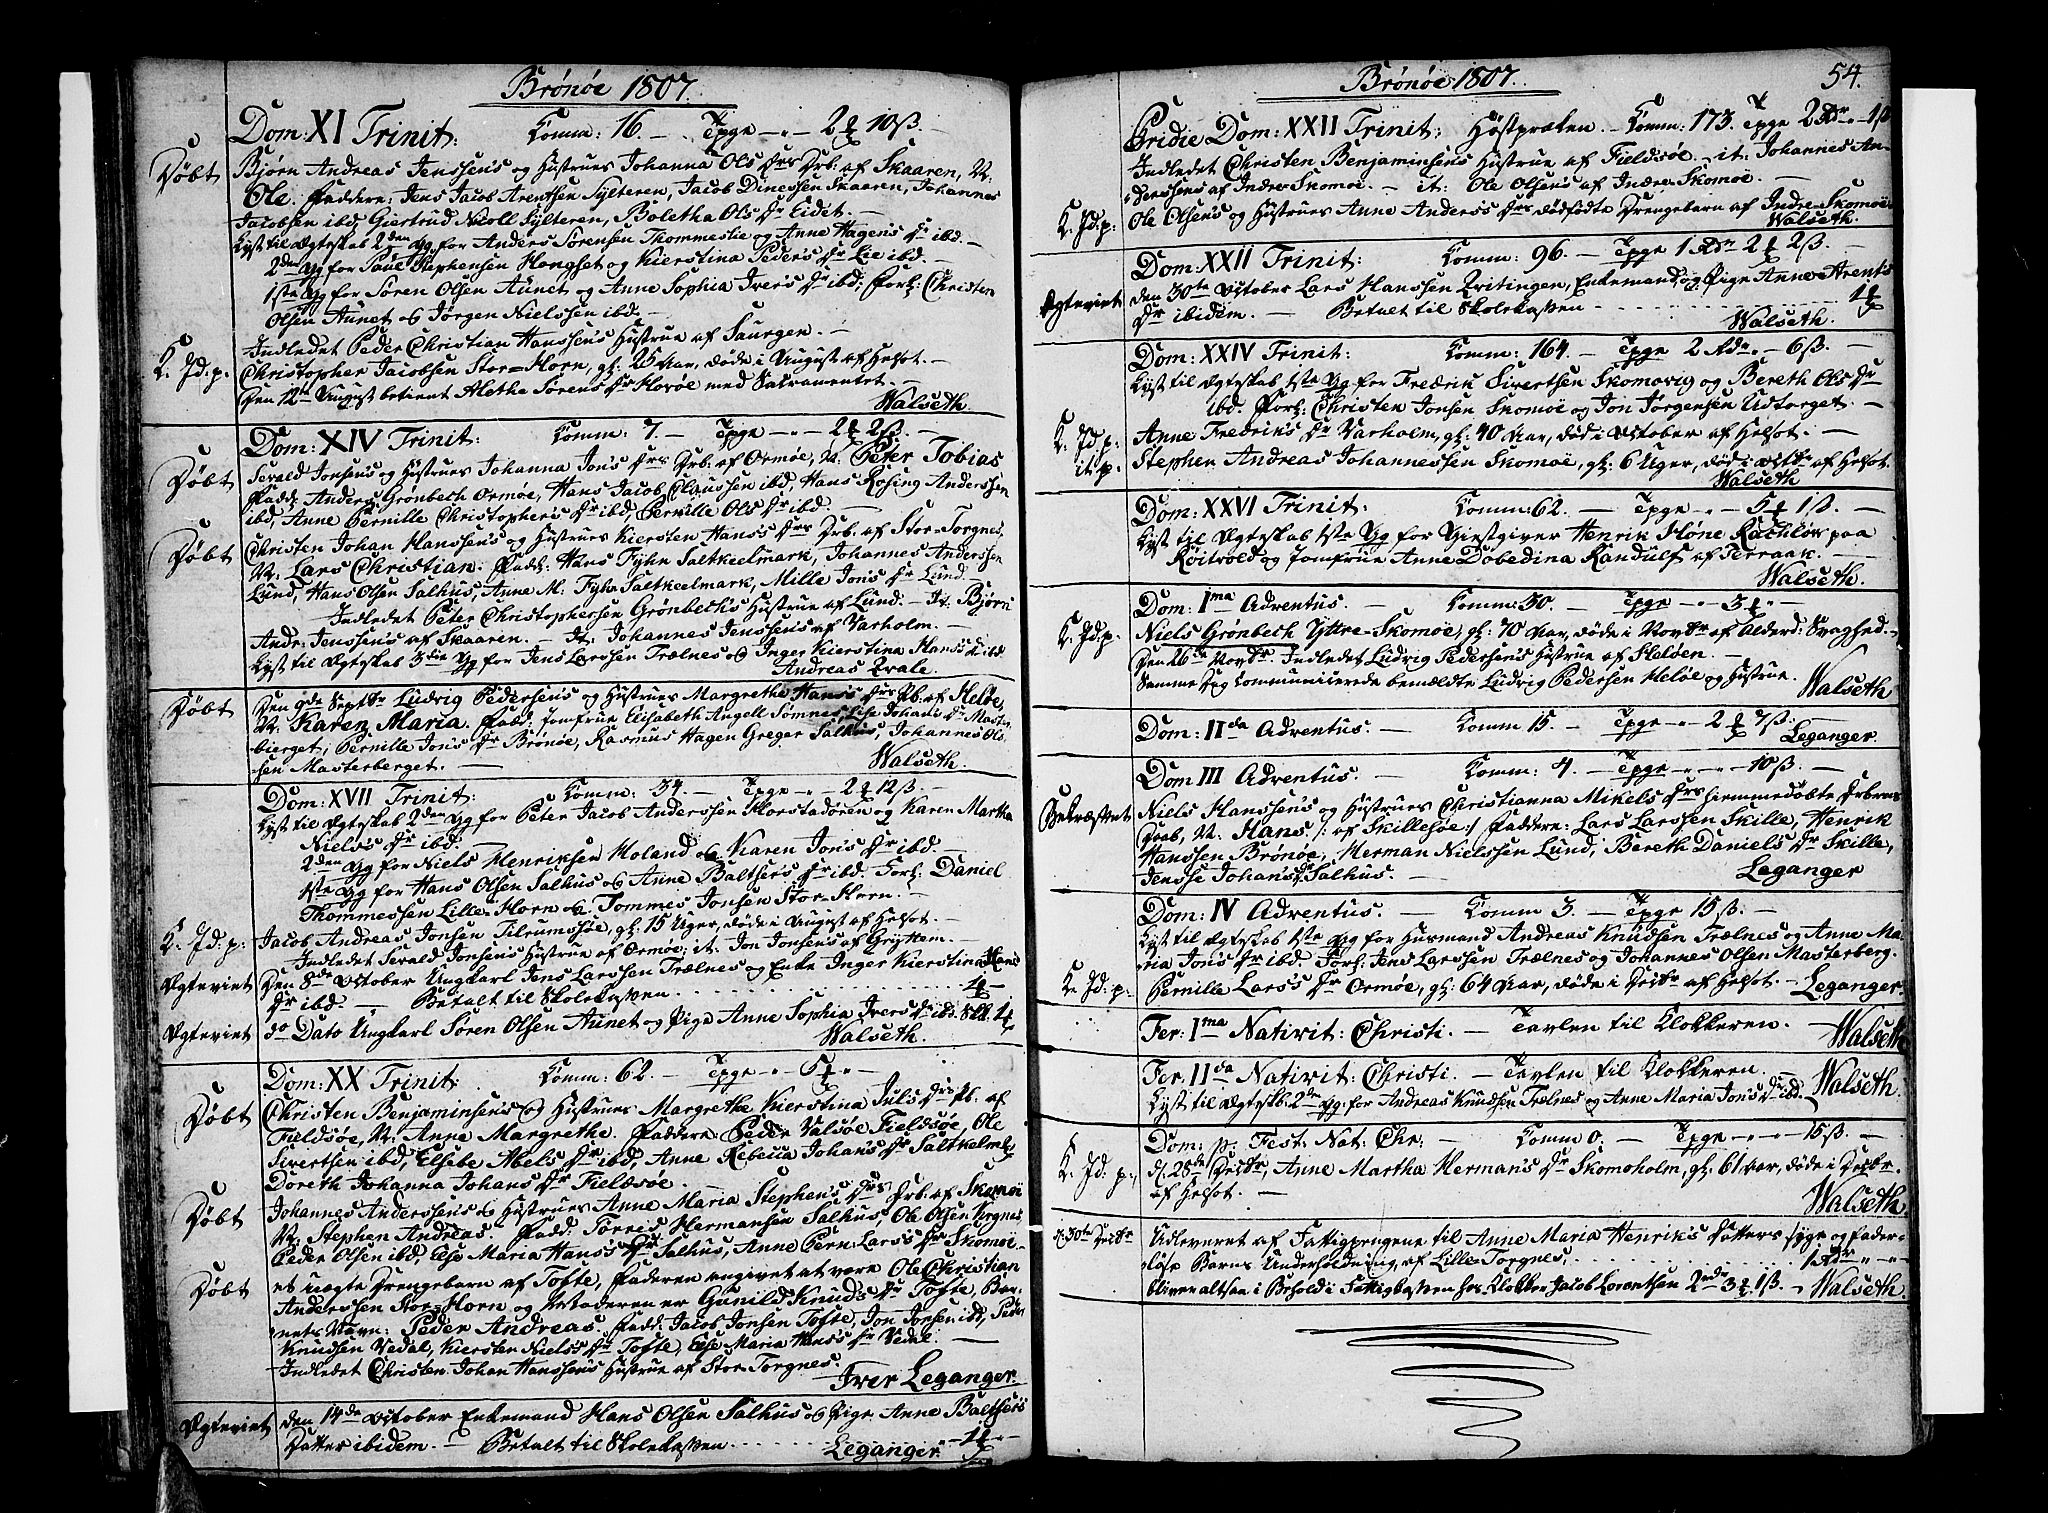 Brønøe 1807.
Dom: XI Trinit: Comm: 16. — Tpge — " — 2 ₰ 10 ß. —
Døbt
Bjørn Andreas Jenssens og Hustrues Johanna Ols Drs Drb: af Skaaren, N:
Ole. Faddere: Jens Jacob Arentsen Sylteren, Jacob Dinessen Skaaren, Johannes
Jacobsen ibd, Giertrud Nicoll Sylteren, Boletha Ols Dr Eidet. —
Lyst til Ægteskab 2den Gg for Anders Sørensen Thommeslie og Anne Hagens Dr ibd. —
2den Gg for Paul Stephensen Hongset og Kierstina Peders Dr Lie ibd. —
1ste Gg for Søren Olsen Aunet og Anne Sophia Ivers Dr ibd; Forl: Christen
Olsen Aunet og Jørgen Nielssen ibd. —
Indledet Peder Christian Hanssens Hustrue af Saurgen. —
K. Jd. p.
Christopher Jacobsen Stor-Horn, gl: 25 Aar, døde i August af Helsot. —
Den 12te August betient Alethe Sørens Dr Horøe med Sacramentet. —
Walseth.
Dom: XIV Trinit: Comm: 7. — Tpge — " — 2 ₰ 2 ß. —
Døbt
Sevald Jonsens og Hustrues Johanna Jons Drs Drb: af Ormøe, N: Peter Tobias
Fadd: Anders Grønbech Ormøe, Hans Jacob Claussen ibd, Hans Rosing Anderssen
ibd, Anne Pernille Christophers Dr ibd, Pernille Ols Dr ibd. —
Døbt
Christen Johan Hanssens og Hustrues Kiersten Hans's Drs Drb. af Stor-Torgnes
N: Lars Christian. Fadd: Hans Fyhn Saltkeelmark, Johannes Anderssen
Lund, Hans Olsen Salhus, Anne M: Fyhn Saltkeelmark, Mille Jons Dr Lund. —
Indledet Peter Christophersen Grønbech's Hustrue af Lund. — It: Bjørn
Andr: Jenssens af Skaaren. — It: Johannes Jenssens af Varholm. —
Lyst til Ægteskab 3die Gg for Jens Larssen Trælnes og Inger Kierstina Hans's D: ibd.
Andreas Qvale.
Døbt
Den 9de Septbr Ludvig Pedersens og Hustrues Margrethe Hans's Drs Pb: af Helöe,
N: Karen Maria. Fadd: Jomfrue Elisabeth Angell Sømnes, Else Johans Dr Master-
bierget, Pernille Jons Dr Brønøe, Rasmus Hagen Greger Salhus, Johannes Ols-
sen Masterberget. —
Walseth.
Dom: XVII Trinit: Comm: 34. — Tpge — " — 2 ₰ 12 ß. —
Lyst til Ægteskab 2den Gg for Peter Jacob Anderssen Horstadören og Karen Martha
Niels's Dr ibd. —
2den Gg for Niels Henriksen Moland og Karen Jons Dr ibd. —
1ste Gg for Hans Olsen Salhus og Anne Balthers Dr ibd. Forl: Daniel
Thommessen Lille-Horn og Tommes Jonsen Stor-Horn. —
K. Jd: p:
Jacob Andreas Jonsen Tilrumsöe, gl: 15 Uger, døde i August af Helsot. —
Indledet Sevald Jonsens Hustrue af Ormøe; it: Jon Jonsens af Gryttem. —
Ægteviet
Den 8de October Ungkarl Jens Larssen Trælnes og Enke Inger Kierstina Hans
Dr ibd. — Betalt til Skolekassen . . . . . . . 1 ₰ —
Ægteviet
do Dato Ungkarl Søren Olsen Aunet og Pige Anne Sophia Ivers Dr ibd.
Walseth.
Dom: XX Trinit: Comm: 62. — Tpge — " — 5 ₰ " —
Døbt
Christen Benjaminsens og Hustrues Margrethe Kierstina Juls Drs Pb. af
Fieldsøe, N: Anne Margrethe. Faddere: Peder Valsøe Fieldsøe, Ole
Sivertsen ibd, Elsebe Abels Dr ibd, Anne Rebecca Johans Dr Saltkelmk,
Doreth Johanna Johans Dr Fieldsøe. —
Døbt
Johannes Anderssens og Hustrues Anne Maria Stephens Drs Drb: af Skomøe
N: Stephen Andreas. Fadd: Torris Hermansen Salhus, Ole Olsen Torgnes,
Peder Olsen ibd, Else Maria Hans's Dr Salhus, Anne Pern: Lars's Dr Skomöe. —
Døbt
et uægte Drengebarn af Tofte, Faderen angivet at være Ole Christian
Anderssen Stor-Horn og Moderen er Gunild Knuds Dr Tofte, Bar-
nets Navn: Peder Andreas. Fadd: Jacob Jonsen Tofte, Jon Jonsen ibd, Peder
Knudsen Vedal, Kiersten Niels Dr Tofte, Else Maria Hans's Dr Vedal. —
Indledet Christen Johan Hanssens Hustrue af Stor-Torgnes.
Iver Leganger.
Ægteviet
den 14de October Enkemand Hans Olsen Salhus og Pige Anne Balthers
Datter ibidem. — Betalt til Skolekassen . . . . . . — 1 ₰ " —
Leganger.
Brønøe 1807. 54.
Pridie Dom: XXII Trinit: Høstprøken. — Comm: 173. Tpge 2 Rdr " 1 ß
Indledet Christen Benjaminsens Hustrue af Fieldsøe. — it: Johannes An-
derssens af Indre Skomøe. — it: Ole Olsen's af Indre Skomøe. —
K. Jd. p:
Ole Olsen's og Hustrues Anne Anders's Drs dødfødte Drengebarn af Indre-Skomøe.
Walseth.
Dom: XXII Trinit: Comm: 96. — Tpge 1 Rdr 2 ₰ 2 ß. —
Ægteviet
den 30te October Lars Hanssen Qvitingen, Enkemand, og Pige Anne Arents
Dr ibidem. — Betalt til Skolekassen . . . . . . . 1 ₰
Walseth.
Dom: XXIV Trinit: Comm: 164. — Tpge 2 Rdr. — 6 ß. —
Lyst til Ægteskab 1ste Gg for Fredrik Sivertsen Skomovig og Bereth Ols Dr
ibd. Forl: Christen Jonsen Skomøe og Jon Jørgensen Udtorget. —
K. Jd. p:
Anne Fredriks Dr Varholm, gl: 40 Aar, død i October af Helsot. —
it. p:
Stephen Andreas Johannessen Skomøe, gl: 6 Uger, død i Octbr af Helsot.
Walseth
Dom: XXVI Trinit: Comm: 62. — Tpge — " — 5 ₰ 1 ß. —
Lyst til Ægteskab 1ste Gg for Giestgiver Henrik Høne Rachlöw paa
Röitvold og Jomfrue Anne Dobedina Randulf af Terraak. —
Walseth.
Dom: Ima Adventus. — Comm: 30. — Tpge — " 3 ₰ " —
K. Jd. p:
Niels Grønbech Yttre-Skomøe, gl: 70 Aar, døde i Novbr af Alderd: Svaghed. —
Den 26de Novbr: Indledet Ludvig Pedersens Hustrue af Helöen. —
Samme Dag communicerede bemældte Ludvig Pedersen Helöe og Hustrue. Walseth
Dom: IIda Adventus. — Comm 15. — Tpge — " 2 ₰ 7 ß. —
Leganger.
Dom III Adventus. — Comm: 4. — Tpge — " — " — 10 ß. —
Bekræftet
Niels Hanssens og Hustrues Christianna Mikels Drs hiemmedøbte Drenge-
barn, N: Hans. /: af Skillesøe :/ Faddere: Lars Larssen Skille, Henrik
Hanssen Brønøe, Herman Nielssen Lund, Bereth Daniels Dr Skille,
Jensse Johans D: Salhus. — Leganger
Dom: IV Adventus. — Comm 3. — Tpge 15 ß. —
Lyst til Ægteskab 1ste Gg for Husmand Andreas Knudsen Trælnes og Anne Ma-
ria Jons Dr ibd. Forl: Jens Larssen Trælnes og Johannes Olsen Masterberg.
K. Jd: p:
Pernille Lars's Dr Ormøe, gl: 64 Aar, døde i Decbr af Helsot. — Leganger.
Fer: Ima Nativit: Christi. — Tavlen til Klokkeren. — Walseth
Fer: IIda Nativit: Christi. — Tavlen til Klokkeren. —
Lyst til Ægteskb: 2den Gg: for Andreas Knudsen Trælnes og Anne Maria Jons Dr ibd. Walseth.
Dom: p. Fest: Nat: Chr: — Comm 0. — Tpge — " — " — 15 ß. —
K. Jd. p:
d. 28de Decbr, Anne Martha Hermans Dr Skomoholm, gl: 61 Aar, døde i Decbr.
af Helsot. —
Walseth.
d. 30te Decbr
Udleveret af Fattigpengene til Anne Maria Henriks Datters syge og fader-
løse Barns Underholdning, af Lille-Torgnes. . . . . . 1 Rdr " — " —
bliver altsaa i Behold i Fattigkassen hos Klokker Jacob Lorentsen 2 rdr 3 ₰ 1 ß. — Walseth.